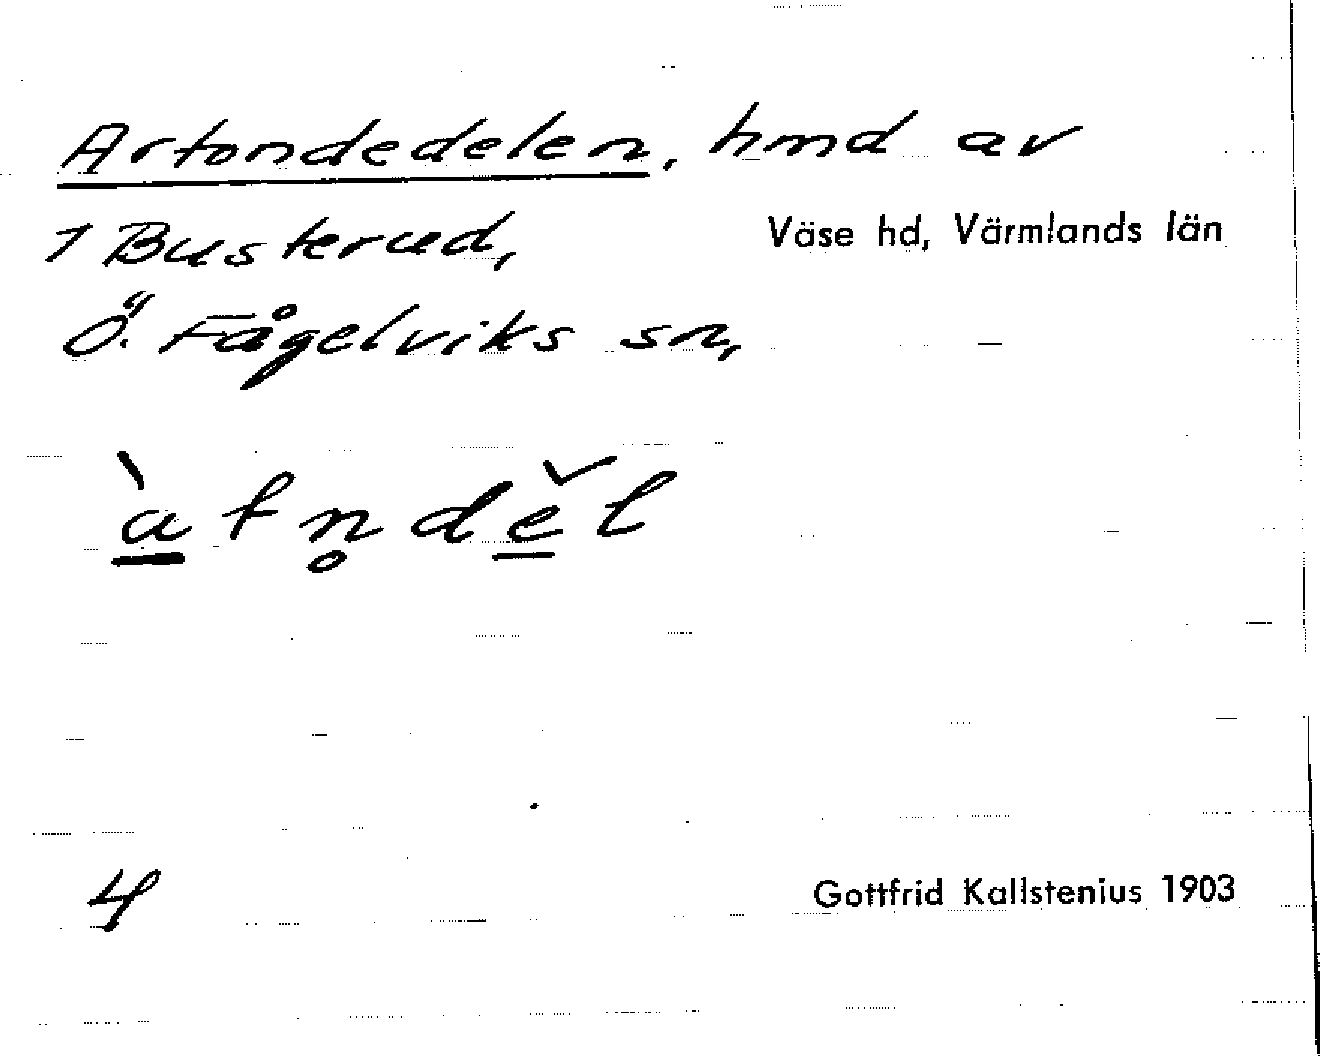 Artondedelen, hmd av
1 Busterud,
Väse hd, Värmlands län
Ö. Fågelviks sn,
à̱tn̥dė̱̌l
4
Gottfrid Kallstenius 1903